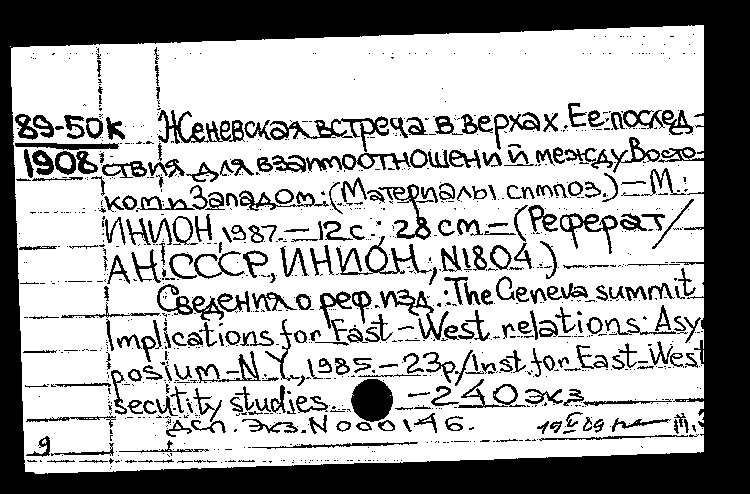 89-50к Женевская встреча в верхах. Ее послед-
1908 ствия для взаимоотношений между Восто-
ком и Западом: (Материалы симпоз.) — М.:
ИНИОН, 1987. — 12 с.; 28 см — (Реферат/
АН СССР, ИНИОН; N1804)
Сведения о реф. изд.: The Geneva summit
Implications for East-West relations: A sy
posium - N.Y., 1985. — 23p./Inst. for East-West
secutity studies. — 240 экз
ДСП. Экз. N 000146.
9